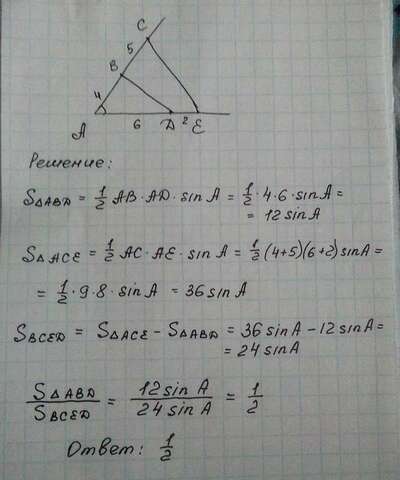 C
5
B
4
A 6 D 2 E
Решение:
S△ABD = 1/2 AB · AD · sin A = 1/2 · 4 · 6 · sin A =
= 12 sin A
S△ACE = 1/2 AC · AE · sin A = 1/2 (4+5)(6+2) sin A =
= 1/2 · 9 · 8 · sin A = 36 sin A
SBCED = S△ACE − S△ABD = 36 sin A − 12 sin A =
= 24 sin A
S△ABD / SBCED = 12 sin A / 24 sin A = 1/2
Ответ: 1/2